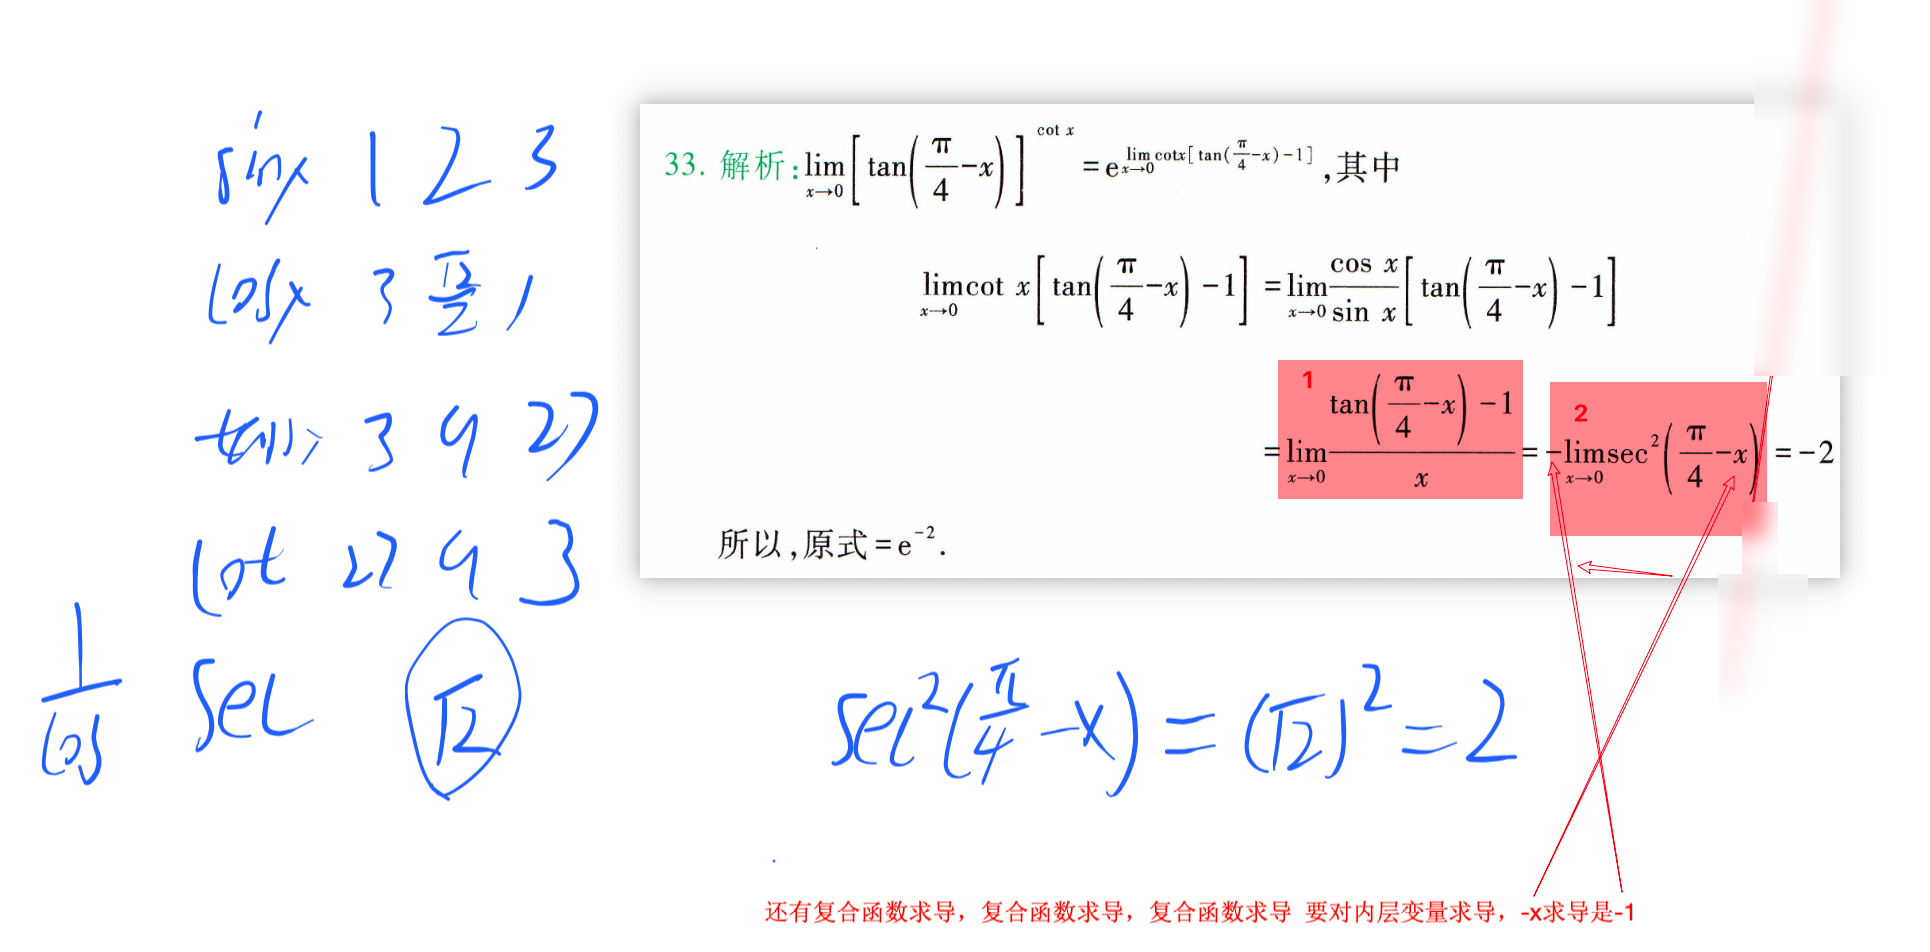 sinx 1 2 3
cosx 3 √2/2 1
tanx 3 9 27
cot 27 9 3
1/cos sec √2
33. 解析:lim x→0 [tan(π/4-x)]^cot x = e^lim x→0 cotx[tan(π/4-x)-1] ,其中
lim x→0 cot x[tan(π/4-x)-1] = lim x→0 cos x/sin x[tan(π/4-x)-1]
1 2
= lim x→0 (tan(π/4-x)-1)/x = -lim x→0 sec²(π/4-x) = -2
所以,原式=e⁻².
sec²(π/4-x)=(√2)²=2
还有复合函数求导，复合函数求导，复合函数求导 要对内层变量求导，-x求导是-1